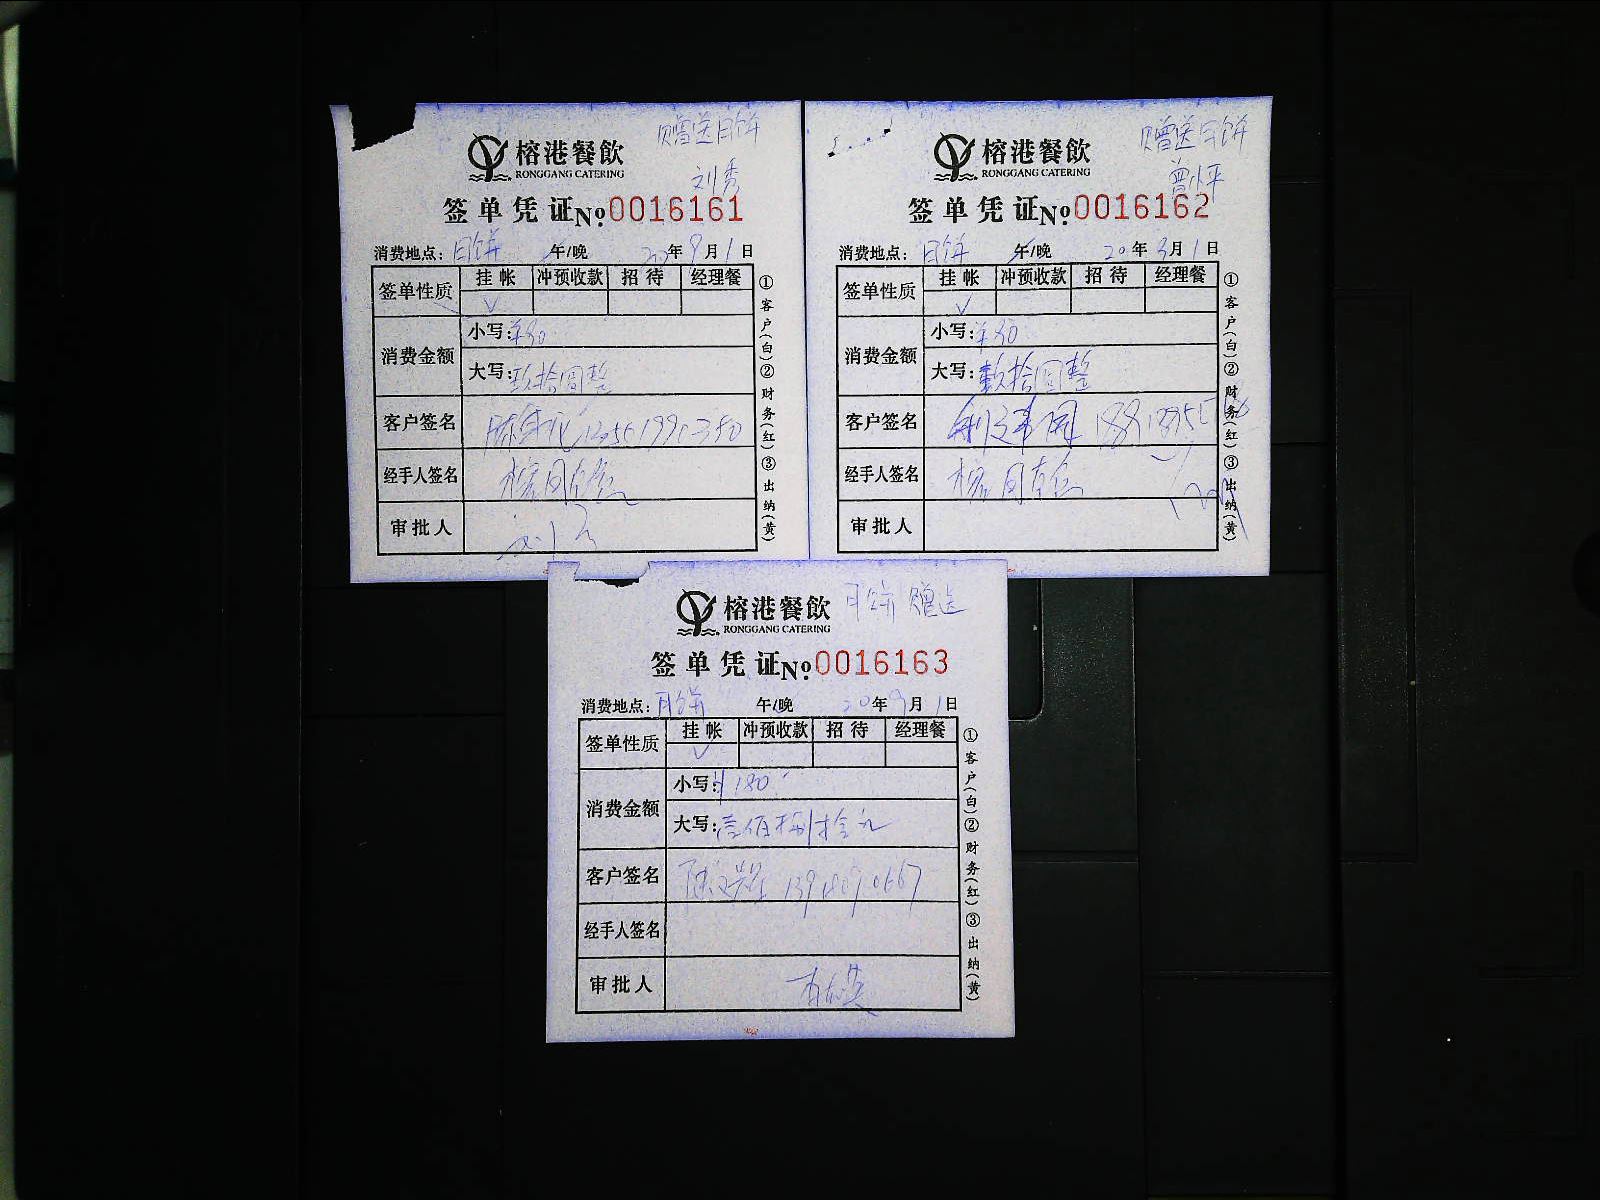 赠送月饼
榕港餐飲
RONGGANG CATERING
刘秀
签单凭证No.0016161
消费地点：月饼 午/晚 20年9月1日
签单性质 挂帐 冲预收款 招待 经理餐
√
消费金额 小写：¥90
大写：玖拾圆整
客户签名
经手人签名
审批人
①客户(白)②财务(红)③出纳(黄)
赠送月饼
榕港餐飲
RONGGANG CATERING
曾小平
签单凭证No.0016162
消费地点：月饼 午/晚 20年9月1日
签单性质 挂帐 冲预收款 招待 经理餐
√
消费金额 小写：¥90
大写：玖拾圆整
客户签名
经手人签名
审批人
①客户(白)②财务(红)③出纳(黄)
榕港餐飲 月饼赠送
RONGGANG CATERING
签单凭证No.0016163
消费地点：月饼 午/晚 20年9月1日
签单性质 挂帐 冲预收款 招待 经理餐
√
消费金额 小写：¥180
大写：壹佰捌拾元
客户签名
经手人签名
审批人
①客户(白)②财务(红)③出纳(黄)